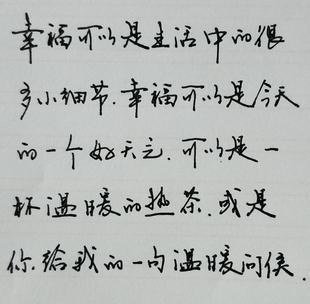 幸福可以是生活中的很
多小细节.幸福可以是今天
的一个好天气.可以是一
杯温暖的热茶.或是
你给我的一句温暖问候.